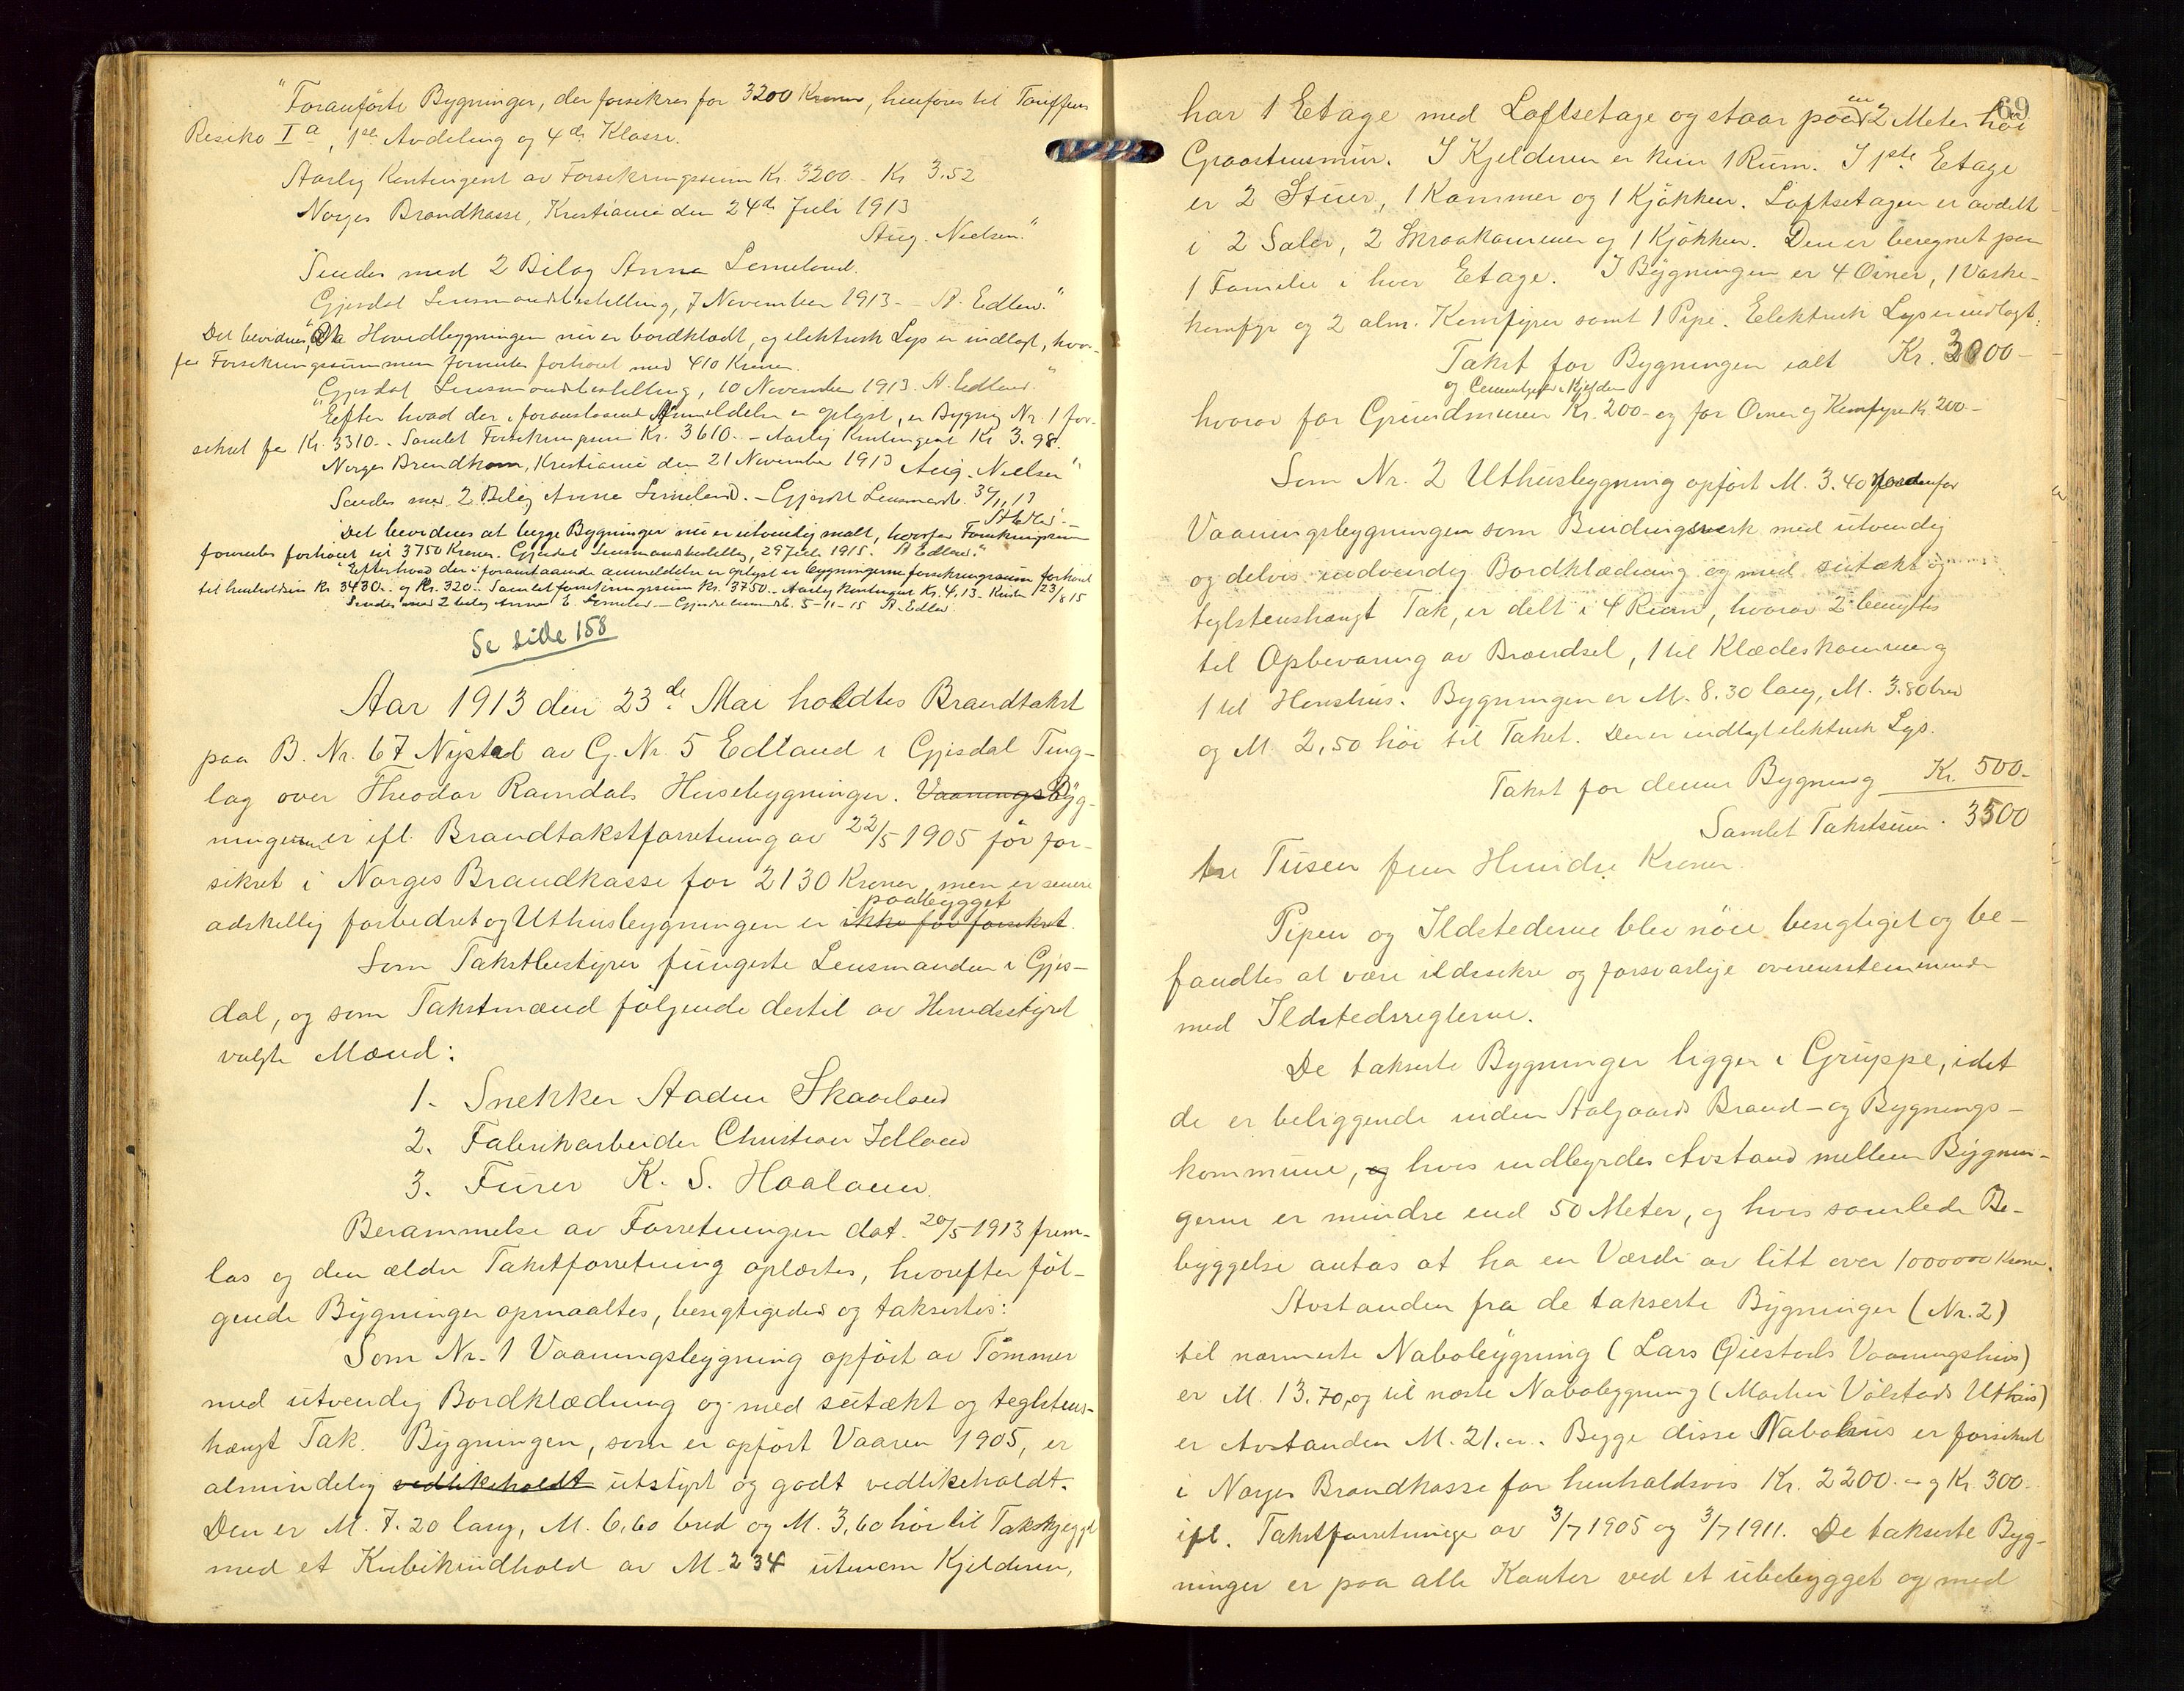 "Foranførte Bygninger, der forsikres for 3200 Kroner, henføres til Tariffens
Risiko Iª, 1ste Avdeling og 4de Klasse.
Aarlig Kontingent av Forsikringssum Kr. 3200.- Kr 3.52
Norges Brandkasse, Kristiania den 24de Juli 1913
Aug. Nielsen."
Sendes med 2 Bilag Anna Lemeland.
Gjesdal Lensmandsbestilling, 7 November 1913 - A. Edland."
Det bevidnes, at Hovedbygningen nu er bordklædt, og elektrisk Lys er indlagt, hvor-
for Forsikringssummen formentes forhøiet med 410 Kroner.
Gjesdal Lensmandsbestilling, 10 November 1913. A. Edland."
"Efter hvad der i foranstaaende Anmeldelse er oplyst, er Bygning Nr. 1 for-
sikret for Kr. 3310.- Samlet Forsikringssum Kr. 3610.- Aarlig Kontingent Kr 3.98.
Norges Brandkasse, Kristiania den 21 November 1913 Aug. Nielsen"
Sendes med 2 Bilag Anna Lemeland. - Gjesdal Lensmandsb. 30/11 13
A. Edland. -
"Det bevidnes at begge Bygninger nu er utvendig malt, hvorfor Forsikringssummen
formentes forhøiet til 3750 Kroner. Gjesdal Lensmandsbestilling, 29 Juli 1915. A Edland."
"Efter hvad der i foranstaaende anmeldelse er oplyst er bygningernes forsikringssum forhøiet
til henholdsvis Kr 3430.- og Kr. 320.- Samlet forsikringssum Kr. 3750.- Aarlig kontingent Kr. 4,13 - Kristia 23/8 15
Sendes med 2 bilag Anna E. Lemeland. - Gjesdal lensmandsb. 5-11-15 A. Edland
Se side 158
Aar 1913 den 23de Mai holdtes Brandtakst
paa B. Nr. 67 Nystad av G. Nr. 5 Edland i Gjesdal Ting-
lag over Theodor Ramdals Husebygninger. Vaaningsbyg-
ningerne er ifl. Brandtakstforretning av 22/5 1905 før for-
sikret i Norges Brandkasse for 2130 Kroner, men er senere
paabygget
adskillig forbedret og Uthusbygningen er ikke før forsikret.
Som Takstbestyrer fungerte Lensmanden i Gjes-
dal, og som Takstmænd følgende dertil av Herredsstyret
valgte Mænd:
1. Snekker Aadne Skaarland
2. Fabrikarbeider Christian Idland
3. Furer K. S. Haaland.
Berammelse av Forretningen dat. 20/5 1913 frem-
las og den ældre Takstforretning oplæstes, hvorefter føl-
gende Bygninger opmaaltes, besigtigedes og taksertes:
Som Nr. 1 Vaaningsbygning opført av Tømmer
med utvendig Bordklædning og med sutækt og teglstens-
hængt Tak. Bygningen, som er opført Vaaren 1905, er
almindelig vedlikeholdt utstyrt og godt vedlikeholdt.
Den er M. 7.20 lang, M. 6,60 bred og M. 3,60 høi til Takskjegget
med et Kubikindhold av M. 234 utenom Kjelderen,
69
en
har 1 Etage med Loftsetage og staar paa 2 Meter høi
Graastensmur. I Kjelderen er kun 1 Rum. I 1ste Etage
er 2 Stuer, 1 Kammer og 1 Kjøkken. Loftsetagen er avdelt
i 2 Saler, 2 Skraakammere og 1 Kjøkken. Den er beregnet paa
1 Familie i hver Etage. I Bygningen er 4 Ovner, 1 Vaske-
komfyr og 2 alm. Komfyrer samt 1 Pipe. Elektrisk Lys er indlagt.
Takst for Bygningen ialt Kr. 3000-
og Cementgulv i Kjelder
hvorav for Grundmuren Kr. 200- og for Ovner og Komfyre Kr. 200.-
Som Nr. 2 Uthusbygning opført M. 3.40 nordenfor
Vaaningsbygningen som Bindingsverk med utvendig
og delvis indvendig Bordklædning og med sutækt og
teglstenshængt Tak, er delt i 4 Rum, hvorav 2 benyttes
til Opbevaring av Brændsel, 1 til Klædeskammer og
1 til Hønshus. Bygningen er M. 8.30 lang, M. 3.80 bred
og M. 2,50 høi til Taket. Der er indlagt elektrisk Lys.
Takst for denne Bygning Kr. 500.-
Samlet Takstsum . 3500
tre Tusen fem Hundre Kroner.
Pipen og Ildstederne blev nøie besigtiget og be-
fandtes at være ildssikre og forsvarlige overensstemmende
med Ildstedsreglerne.
De takserte Bygninger ligger i Gruppe, idet
de er beliggende inden Aalgaards Brand- og Bygnings-
kommune, og hvis indbyrdes Avstand mellem Bygnin-
gerne er mindre end 50 Meter, og hvis samlede Be-
byggelse antas at ha en Værdi av litt over 1000000 Kroner.
Avstanden fra de takserte Bygninger (Nr. 2)
til nærmeste Nabobygning (Lars Qvestads Vaaningshus)
er M. 13.70, og til næste Nabobygning (Martin Vølstads Uthus)
er Avstanden M. 21. Begge disse Nabohus er forsikret
i Norges Brandkasse for henholdsvis Kr. 2200.- og Kr. 300.-
ifl. Takstforretninger av 3/7 1905 og 3/7 1911. De takserte Byg-
ninger er paa alle Kanter ved et ubebygget og med